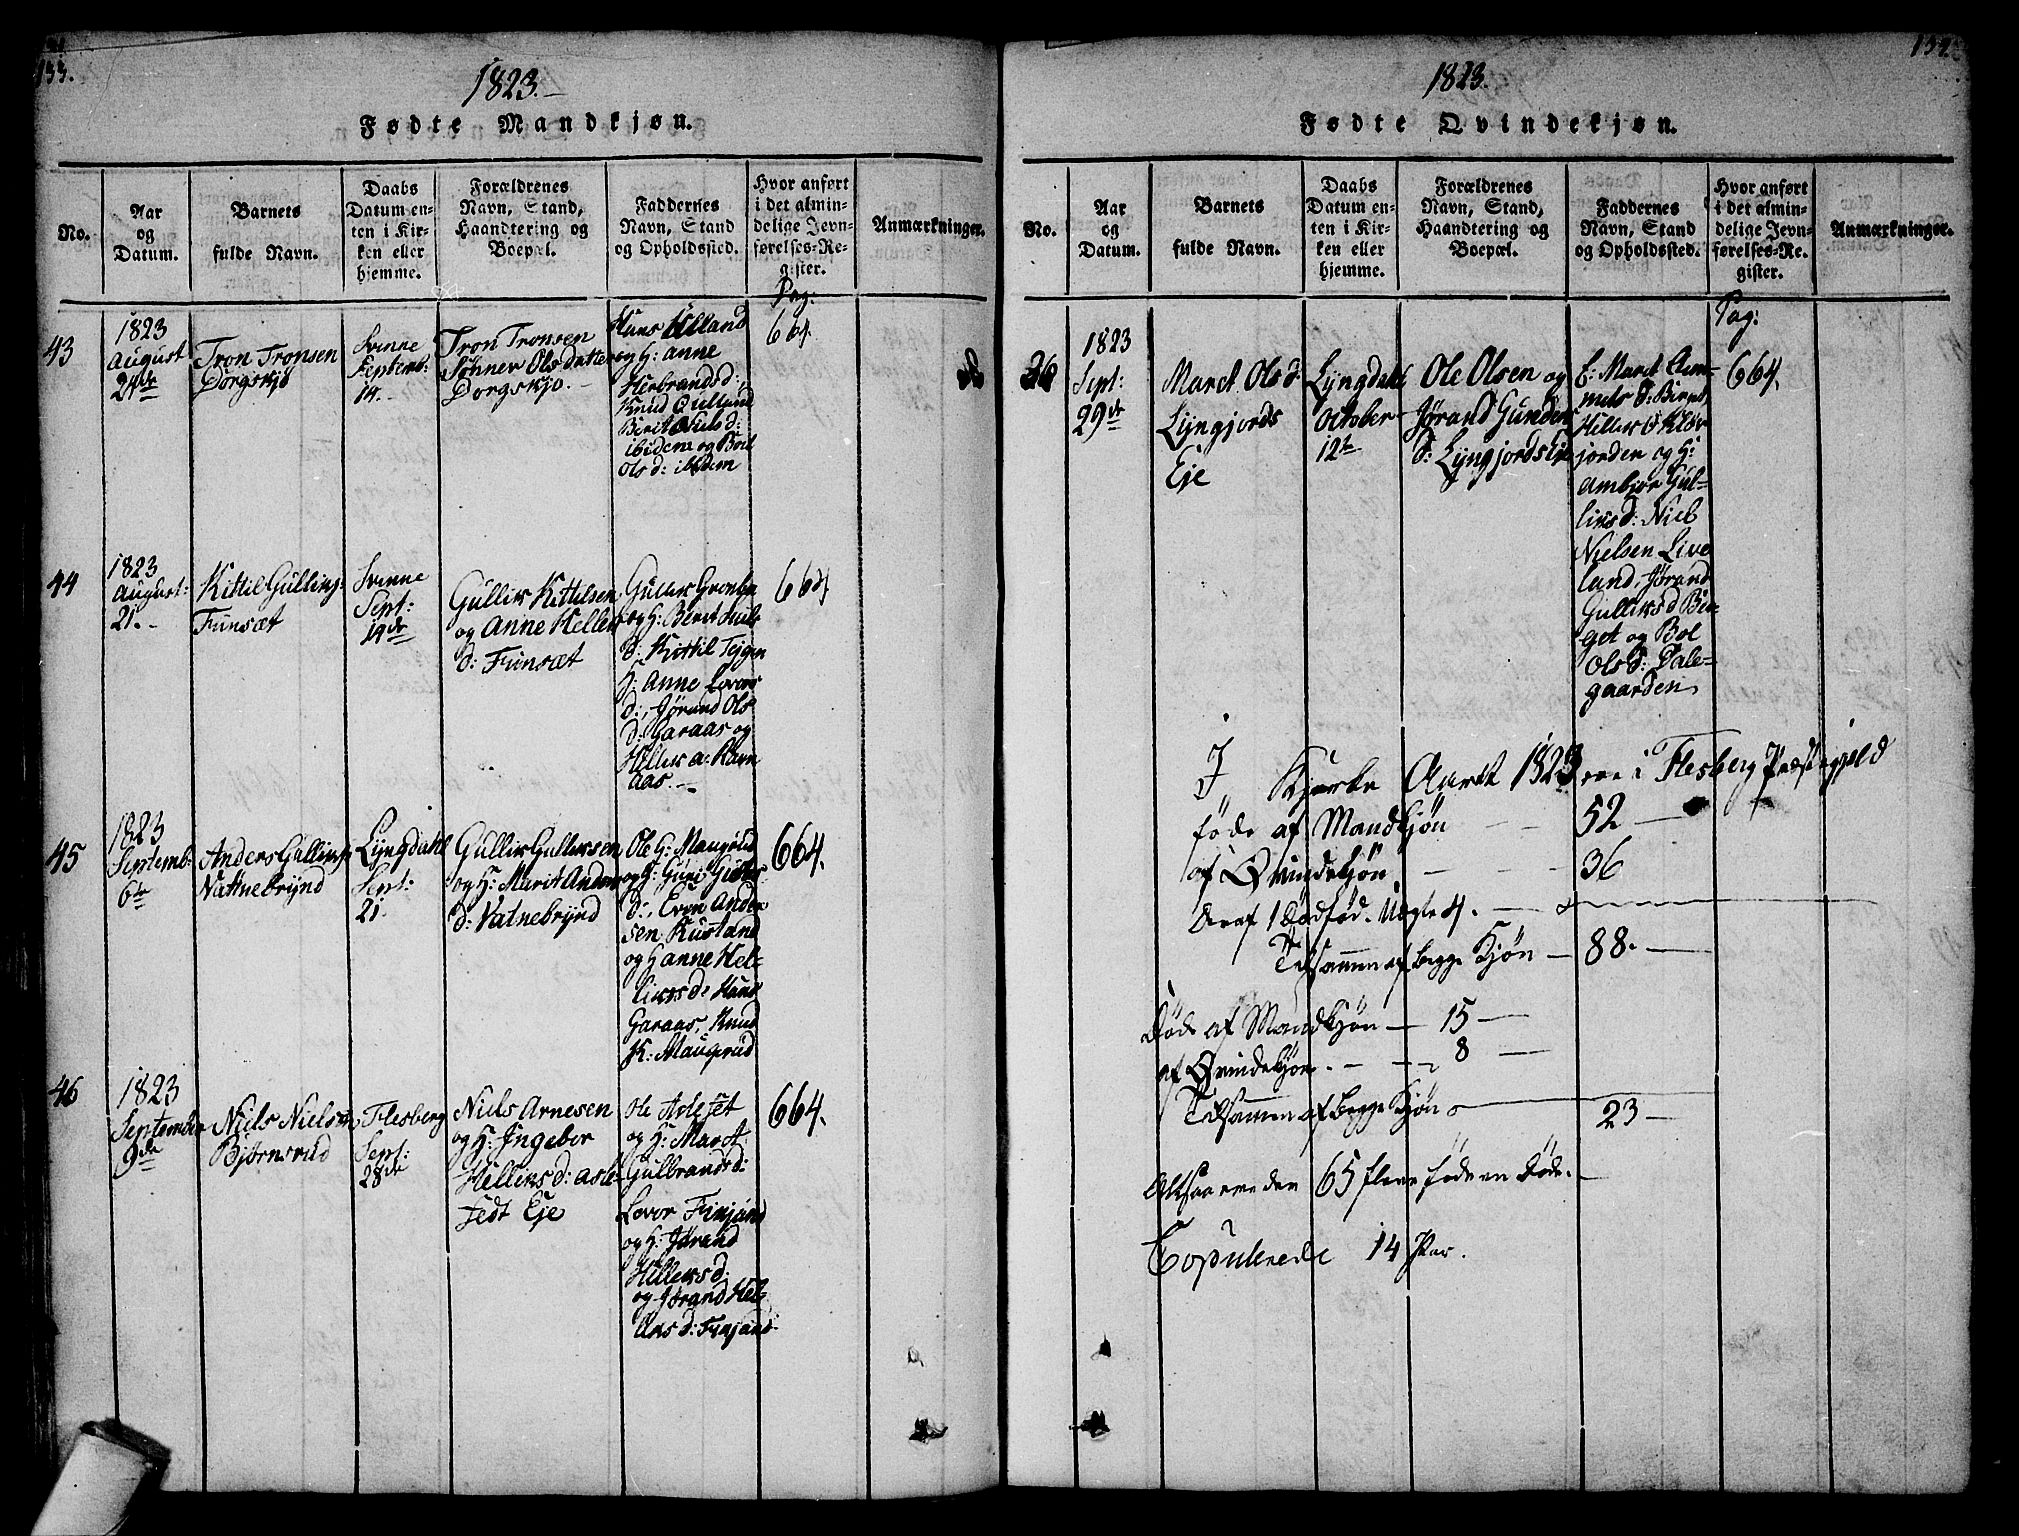 133.
1823.
Fødte Mandkjøn.
No.
Aar
og
Datum.
Barnets
fulde Navn.
Daabs
Datum en-
ten i Kir-
ken eller
hjemme.
Forældrenes
Navn, Stand,
Haandtering og
Boepæl.
Faddernes
Navn, Stand
og Opholdssted.
Hvor anført
i det almin-
delige Jevn-
førelses-Re-
gister.
Anmærkninger.
Pag:
43
1823
August
24de
Tron Tronsen
Dorgskjø
Svenne
Septemb:
14.
Tron Tronsen
Søhner Olsdatter
Dorgskjo.
Hans
og H: Anne
Herbrandsd:
Knud
Berit Niels d:
ibidem og Boel
Ols d: ibidem
664.
44
1823
August:
21.
Kittil Gulling:
Funsæt
Svenne
Sept:
14de
Gullik Kittilsen
og Anne Helleks
d: Funsæt
Gullik
og H: Beret Niels
d: Kittil Tejgen
H: Anne Levors
d:, Jørand Ols
d: Garaas og
Hellek a: Ravn
aas.
664
45
1823
Septemb:
6te
Anders Gulling:
Vattnebrynd
Lyngdahl
Sept:
21.
Gullik Gulleksen
og H: Marit Anders
d: Vatnebrynd
Ole G: Maugerud
og H: Guri
d:, Even Ander
sen Rusland
og H Anne Hel-
liksd: Hans
Garaas, Knud
K: Maugerud
664.
46
1823
September
9de
Niels Nielsen
Bjørnsrud
Flesberg
Sept:
28de
Niels Arnesen
og H: Ingebor
Helleksd: Asle-
fedt Eje
Ole Aslefet
og H: Maret
Gulbrandsd:
Levor
og H: Jørand
Helleksd:
og Jørand Hel-
664.
1823.
Fødte Qvindekjøn.
No.
Aar
og
Datum.
Barnets
fulde Navn.
Daabs
Datum en-
ten i Kir-
ken eller
hjemme.
Forældrenes
Navn, Stand,
Haandtering og
Boepæl.
Faddernes
Navn, Stand
og Opholdssted.
Hvor anført
i det almin-
delige Jevn-
førelses-Re-
gister.
Anmærkninger.
Pag:
36
1823
Sept:
29de
Maret Olsd:
Lyngjords
Eje
Lyngdahl
October
12te
Ole Olsen og
Jørand Gunders
d: Lyngjords Eje
E: Maret
d: Beret
Hellek
jorden og H:
Ambjør Gul-
liksd: Niels
Nielsen Live
land, Jørand
Gulliksd
og Bol
Olsd: Dale-
gaarden
664.
I Kjerke Aaret 1823 ere i Flesberg Præstegjeld
føde af Mandkjøn 52
af Qvindekjøn 36
deraf 1 Dødfød. Uægte 4.
Tilsammen af begge Kjøn 88.
Døde af Mandkjøn 15
af Qvindekjøn 8
Tilsammen af begge Kjøn 23
Altsaa ere der 65 flere føde en Døde.
Copulerede 14 Par.